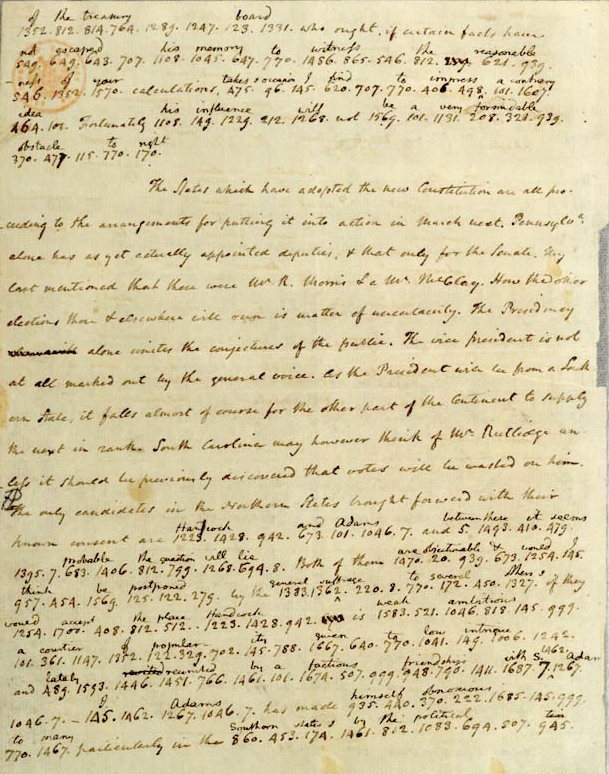 of the treasury board
1352. 812. 814. 764. 1289. 1247. 123. 1331. who ought, if certain facts have
not escaped his memory to witness the reasonable
549. 649. 643. 707. 1108. 1045. 647. 770. 1486. 865. 546. 812. 624. 939.
ness of your takes occasion I find to impress a contrary
546. 1352. 1570. calculations, 475. 96. 145. 620. 707. 770. 406. 498. 101. 1607.
idea his influence will be a very formidable
464. 101. Fortunately 1108. 149. 1229. 212. 1268. not 1569. 101. 1131. 208. 324. 939.
obstacle to right
370. 477. 115. 770. 170.
The States which have adopted the new Constitution are all pro-
-ceeding to the arrangements for putting it into action in March next. Pennsylva.
alone has as yet actually appointed deputies, & that only for the Senate. My
last mentioned that these were Mr. R. Morris & a Mr. McClay. How the other
elections there & elsewhere will run is matter of uncertainty. The Presidency
alone unites the conjectures of the public. The vice president is not
at all marked out by the general voice. As the President will be from a South-
ern State, it falls almost of course for the other part of the Continent to supply
the next in rank. South Carolina may however think of Mr. Rutlidge un-
less it should be previously discovered that votes will be wasted on him.
The only candidates in the Northern States brought forward with their
Hancock and Adams between these it seems
known consent are 1223. 1428. 942. 673. 101. 1046. 7. and 5. 1493. 410. 479.
probable the question will lie are objectionable & would I
1395. 7. 683. 1406. 812. 799. 1268. 694. 8. Both of them 1470. 20. 939. 673. 1254. 145.
think be postponed general suffrage to several others
957. 454. 1569. 125. 122. 279. by the 1383. 1362. 220. 8. 770. 172. 450. 1327. of they
would accept the place Handcock weak ambitious
1254. 1700. 408. 812. 512. 1223. 1428. 942. is 1583. 521. 1046. 818. 145. 999.
a courtier of popular ity given to low intrigue
101. 361. 1147. 1352. 122. 329. 702. 145. 788. 1667. 640. 770. 1041. 149. 1006. 1242.
lately reunited by a factious friendship with S. Adams
and 489. 1593. 1446. 1451. 766. 1461. 101. 1674. 507. 999. 948. 790. 1411. 1687. 7. 1462. 1267.
J Adams himself obnoxious
1046. 7. – 145. 1462. 1267. 1046. 7. has made 935. 440. 370. 222. 1685. 145. 999.
to many Southern states by the political ten
770. 1467. particularly in the 860. 453. 174. 1461. 812. 1083. 694. 507. 945.